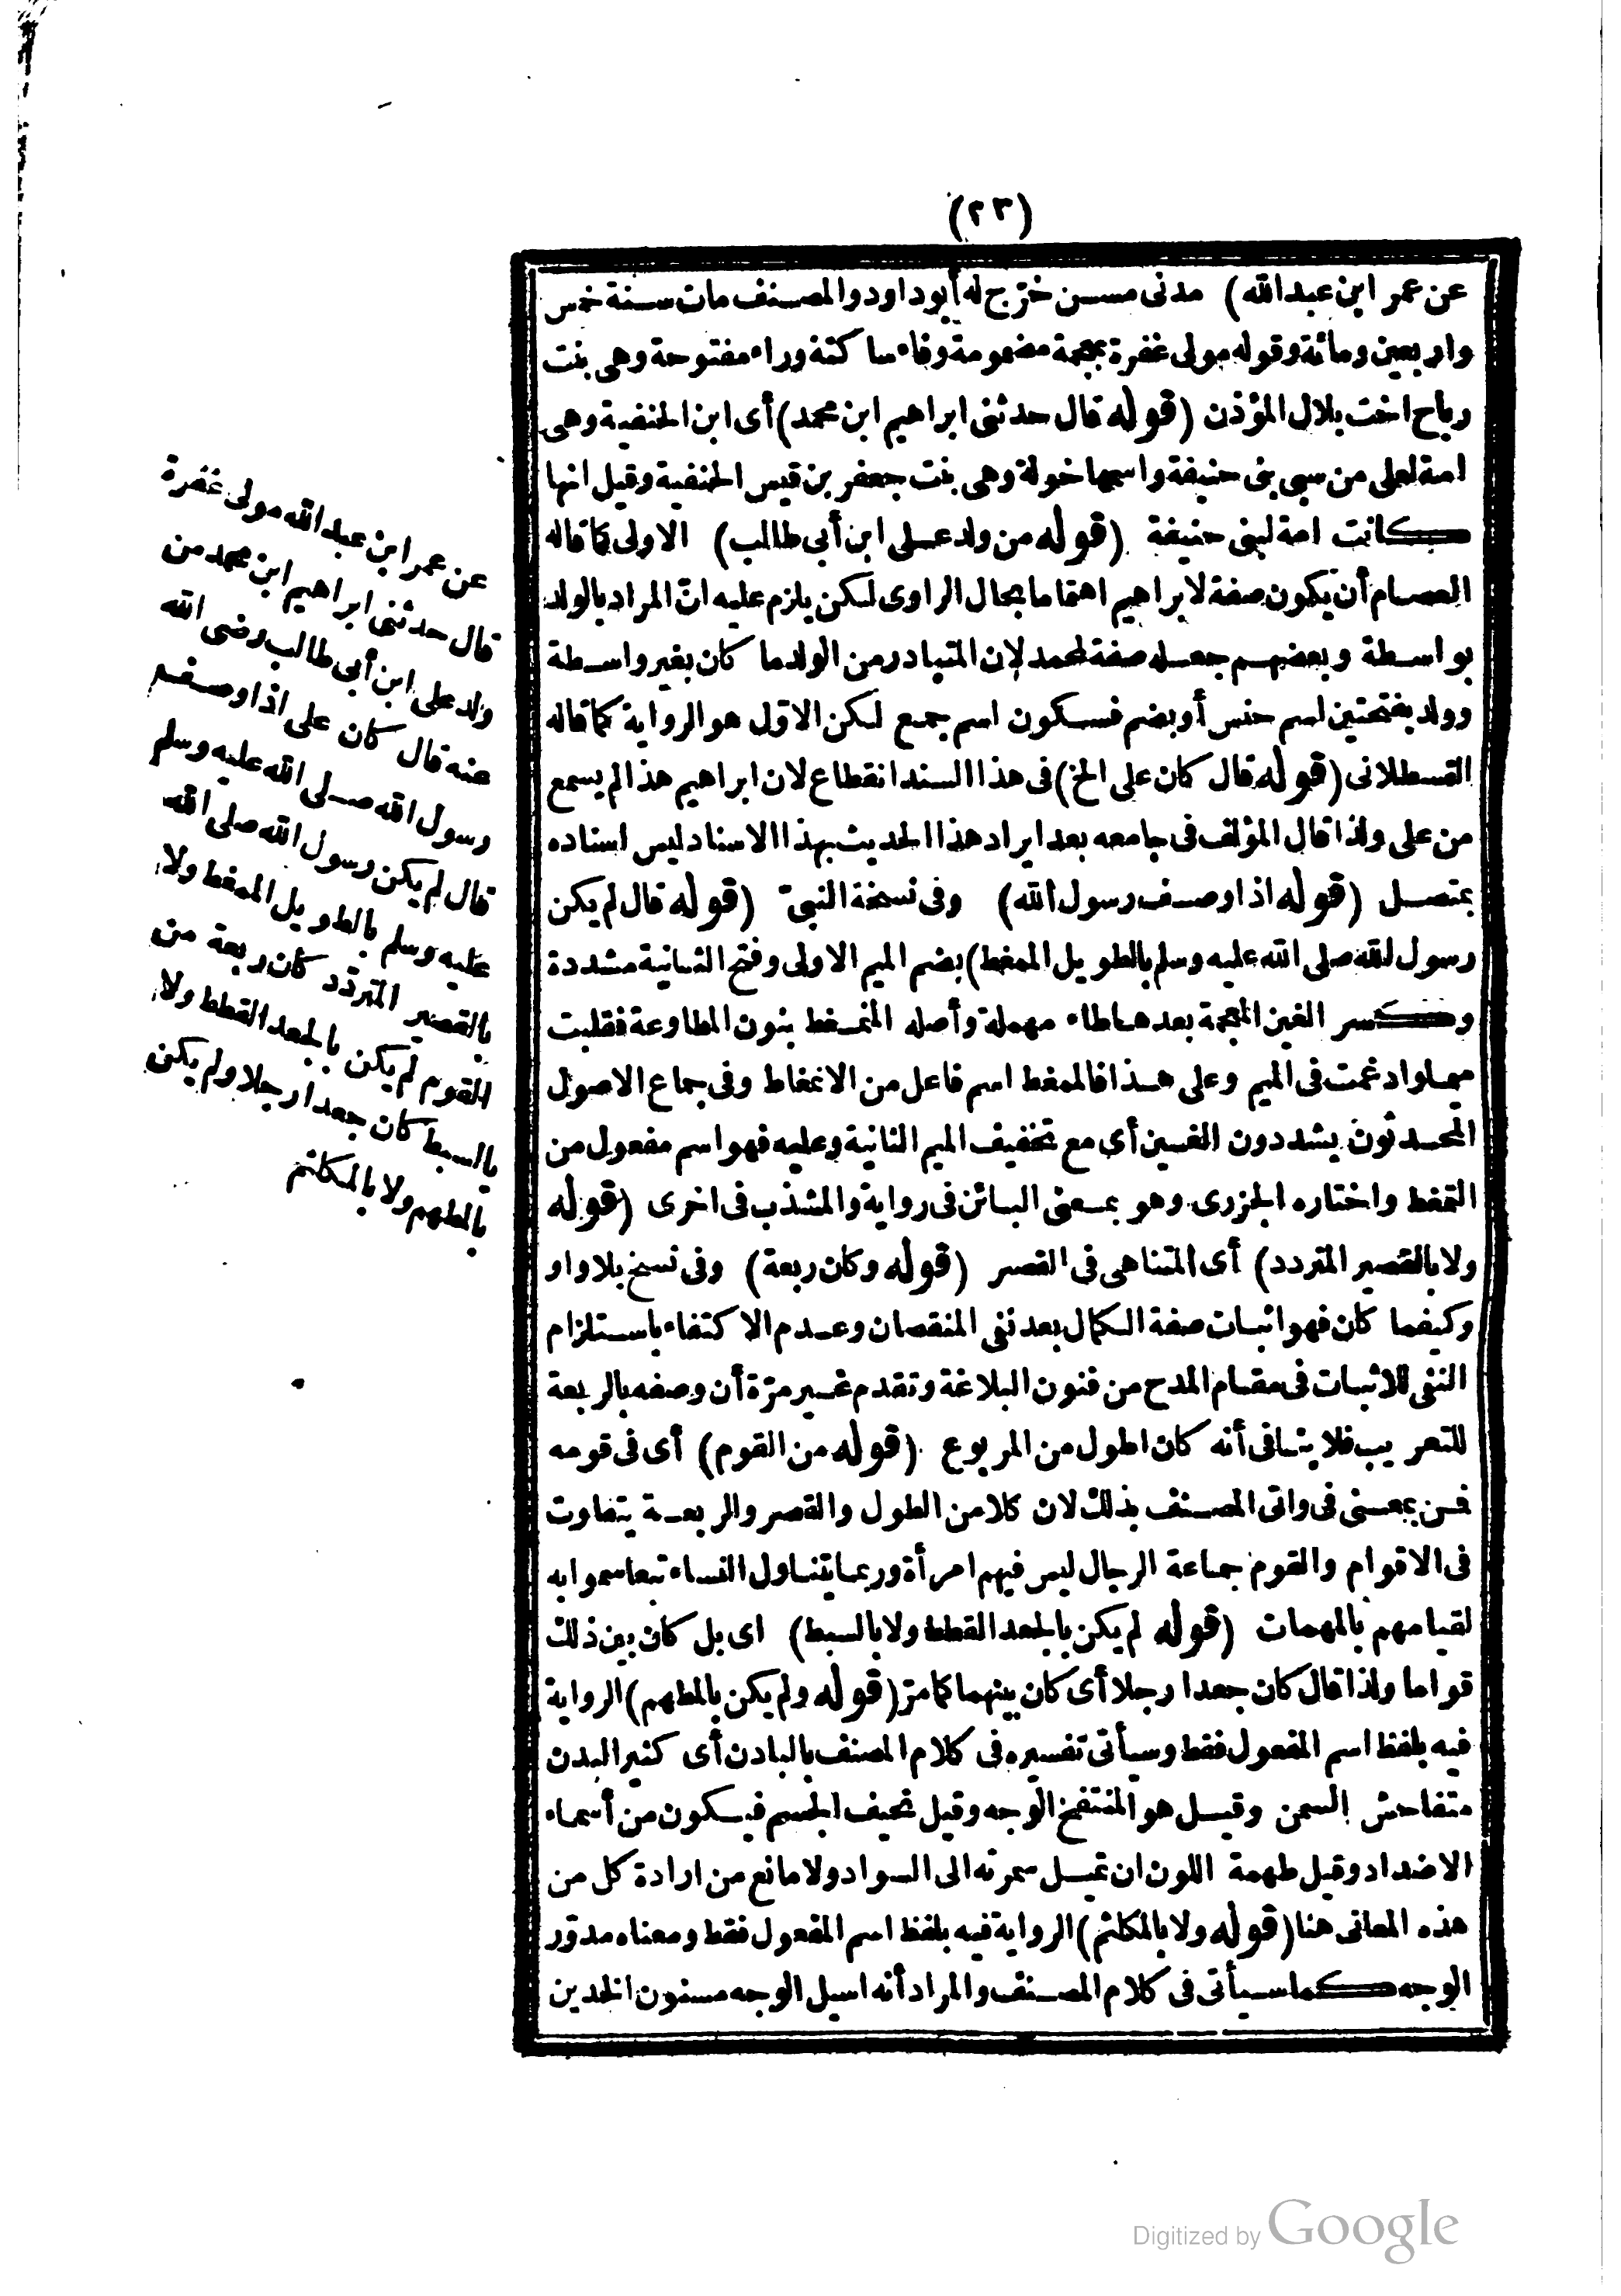 (٢٣)
عن عمر ابن عبدالله) مدنى مسن خرّج له أبو داود والمصنف مات سنة خمس
واربعين ومائة وقوله مولى غفرة بمعجمة مضمومة وفاء ساكنة وراء مفتوحة وهى بنت
رباح اخت بلال المؤذن (قوله قال حدثنى ابراهيم ابن محمد) أى ابن الحنفية وهى
امة لعلى من سبى بنى حنيفة واسمها خولة وهى بنت جعفر بن قيس الحنفية وقيل انها
كانت امة لبنى حنيفة (قوله من ولد على ابن أبى طالب) الاولى كما قاله
العصام أن يكون صفة لابراهيم اهتماما بحال الراوى لكن يلزم عليه انّ المراد بالولد
بواسطة وبعضهم جعله صفة لمحمد لان المتبادر من الولد ما كان بغير واسطة
وولد بفتحتين اسم جنس أو بضم فسكون اسم جمع لكن الاوّل هو الرواية كما قاله
القسطلانى (قوله قال كان على الخ) فى هذا السند انقطاع لان ابراهيم هذا لم يسمع
من على ولذا قال المؤلف فى جامعه بعد ايراد هذا الحديث بهذا الاسناد ليس اسناده
بمتصل (قوله اذا وصف رسول الله) وفى نسخة النبىّ (قوله قال لم يكن
رسول لله صلى الله عليه وسلم بالطويل الممغط) بضم الميم الاولى وفتح الثانية مشددة
وكسر الغين المعجمة بعدها طاء مهملة وأصله المنمغط بنون المطاوعة فقلبت
ميما وادغمت فى الميم وعلى هذا فالممغط اسم فاعل من الانمغاط وفى جماع الاصول
المحدثون يشددون الغين أى مع تخفيف الميم الثانية وعليه فهو اسم مفعول من
التمغط واختاره الجزرى وهو بمعنى البائن فى رواية والمشذب فى اخرى (قوله
ولا بالقصير المتردد) أى المتناهى فى القصر (قوله وكان ربعة) وفى نسخ بلا واو
وكيفما كان فهو اثبات صفة الكمال بعد نفى النقصان وعدم الاكتفاء باستلزام
النفى للاثبات فى مقام المدح من فنون البلاغة وتقدم غير مرّة أن وصفه بالربعة
للتعريب فلا ينافى أنه كان اطول من المربوع (قوله من القوم) أى فى قومه
فمن بمعنى فى واتى المصنف بذلك لان كلا من الطول والقصر والربعة يتفاوت
فى الاقوام والقوم جماعة الرجال ليس فيهم امرأة وربما يتناول النساء تبعا سموا به
لقيامهم بالمهمات (قوله لم يكن بالجعد القطط ولا بالسبط) اى بل كان بين ذلك
قواما ولذا قال كان جعدا رجلا أى كان بينهما كما مرّ (قوله ولم يكن بالمطهم) الرواية
فيه بلفظ اسم المفعول فقط وسيأتى تفسيره فى كلام المصنف بالبادن أى كثير البدن
متفاحش السمن وقيل هو المنتفخ الوجه وقيل نحيف الجسم فيكون من أسماء
الاضداد وقيل طهمة اللون ان تميل سمرته الى السواد ولا مانع من ارادة كل من
هذه المعانى هنا (قوله ولا بالمكلثم) الرواية فيه بلفظ اسم المفعول فقط ومعناه مدوّر
الوجه كما سيأتى فى كلام المصنف والمراد أنه اسيل الوجه مسنون الخدين
عن عمر ابن عبد الله مولى غفرة
قال حدثنى ابراهيم ابن محمد من
ولد على ابن أبى طالب رضى الله
عنه قال كان على اذا وصف
رسول الله صلى الله عليه وسلم
قال لم يكن رسول الله صلى الله
عليه وسلم بالطويل الممغط ولا
بالقصير المتردّد كان ربعة من
القوم لم يكن بالجعد القطط ولا
بالسبط كان جعدا رجلا ولم يكن
بالمطهم ولا بالمكلثم
Digitized by Google